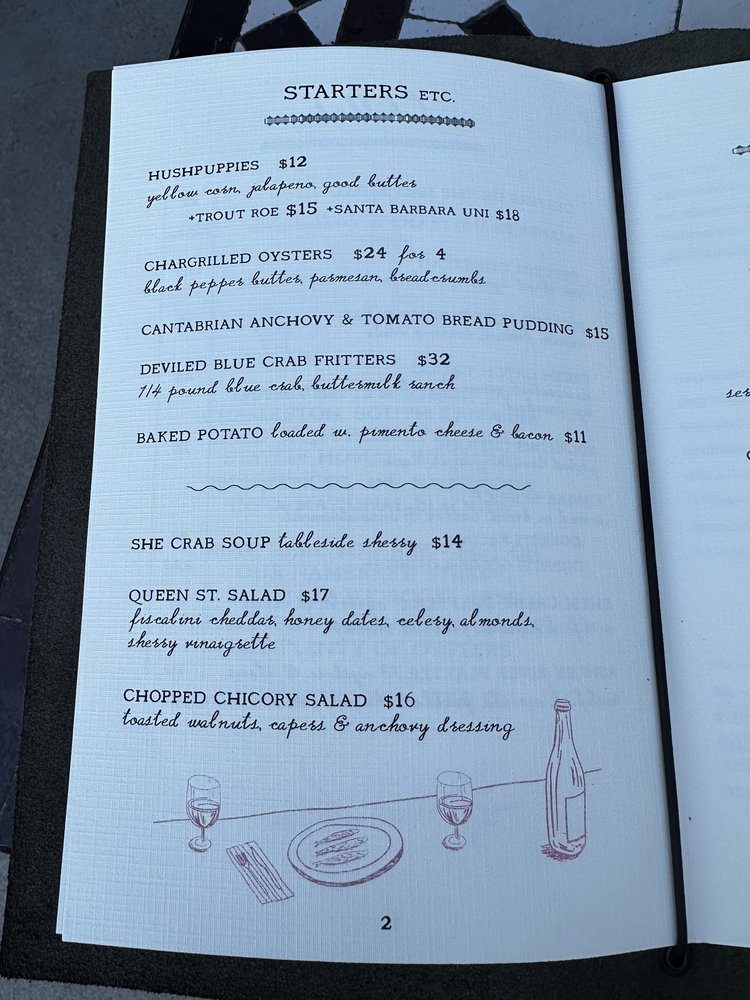 STARTERS ETC.
HUSHPUPPIES $12
yellow corn, jalapeno, good butter
+TROUT ROE $15 +SANTA BARBARA UNI $18
CHARGRILLED OYSTERS $24 for 4
black pepper butter, parmesan, breadcrumbs
CANTABRIAN ANCHOVY & TOMATO BREAD PUDDING $15
DEVILED BLUE CRAB FRITTERS $32
1/4 pound blue crab, buttermilk ranch
BAKED POTATO loaded w. pimento cheese & bacon $11
SHE CRAB SOUP tableside sherry $14
QUEEN ST. SALAD $17
fiscalini cheddar, honey dates, celery, almonds,
sherry vinaigrette
CHOPPED CHICORY SALAD $16
toasted walnuts, capers & anchovy dressing
2